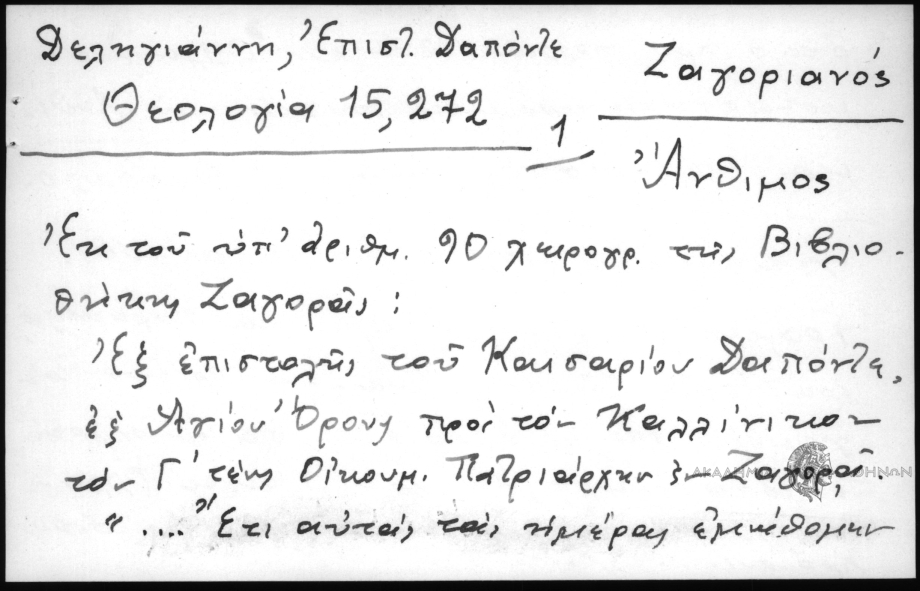 Δεληγιάννη, Ἐπιστ. Δαπόντε
Θεολογία 15,272
1
Ζαγοριανός
Ἄνθιμος
Ἐκ τοῦ ὑπ' ἀριθμ. 90 χειρογρ. τῆς Βιβλιο-
θήκης Ζαγορᾶς:
Ἐξ ἐπιστολῆς τοῦ Καισαρίου Δαπόντε,
ἐξ Ἁγίου Ὄρους πρὸς τὸν Καλλίνικον
τὸν Γ' τέως Οἰκουμ. Πατριάρχην ἐν Ζαγορᾷ.
ΑΚΑΔΗΜ ΘΗΝΩΝ
"....Ἔτι αὐτὰς τὰς ἡμέρας